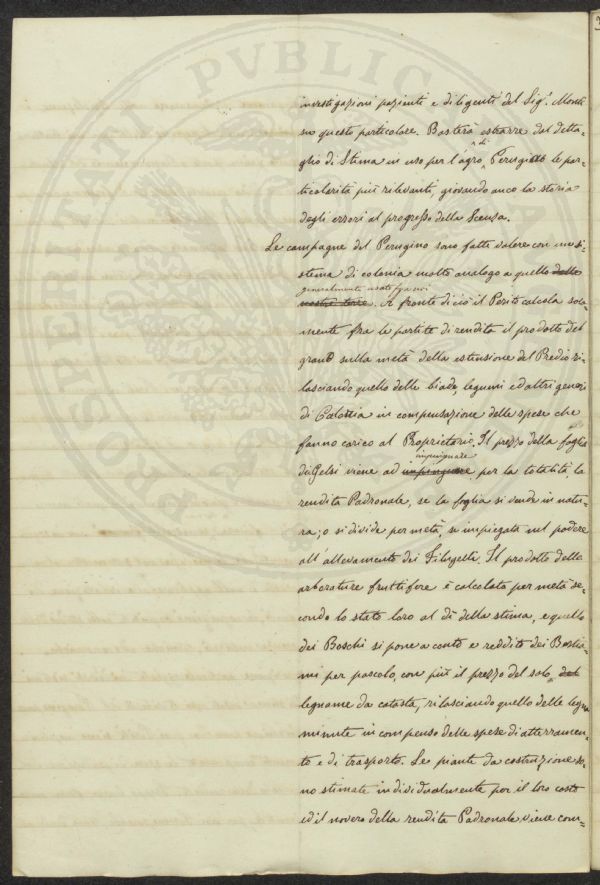 PROSPERITATI PVBLICAE A
investigazioni pazienti e diligenti del Sig.r Monti
su questo particolare. Basterà estrarre dal detta-
glio di Stima in uso per l'agro di Perugia le par-
ticolarità più rilevanti, giovando anco la storia
degli errori al progresso della Scenza.
Le campagne del Perugino sono fatte valere con un si-
stema di colonia molto analogo a quello delle
generalmente usato fra noi
nostre terre. A fronte di ciò il Perito calcola sola-
mente fra le partite di rendita il prodotto del
grano sulla metà della estensione del Predio ri-
lasciando quello delle biade, legumi ed altri generi
di Colonia in compensazione delle spese che
fanno carico al Proprietario. Il prezzo della foglia
impinguare
di Gelsi viene ad impinguare per la totalità la
rendita Padronale, se la foglia si vende in natu-
ra; o si divide per metà, se impiegata nel podere
all'allevamento dei Filugelli. Il prodotto delle
arborature fruttifere è calcolato per metà se-
condo lo stato loro al dì della stima, e quello
dei Boschi si pone a conto e reddito dei Bestia-
mi per pascolo, con più il prezzo del solo del
legname da catasta, rilasciando quello delle legna
minute in compenso delle spese di atterramen-
to e di trasporto. Le piante da costruzione so-
no stimate individualmente per il loro costo
ed il novero della rendita Padronale viene com-